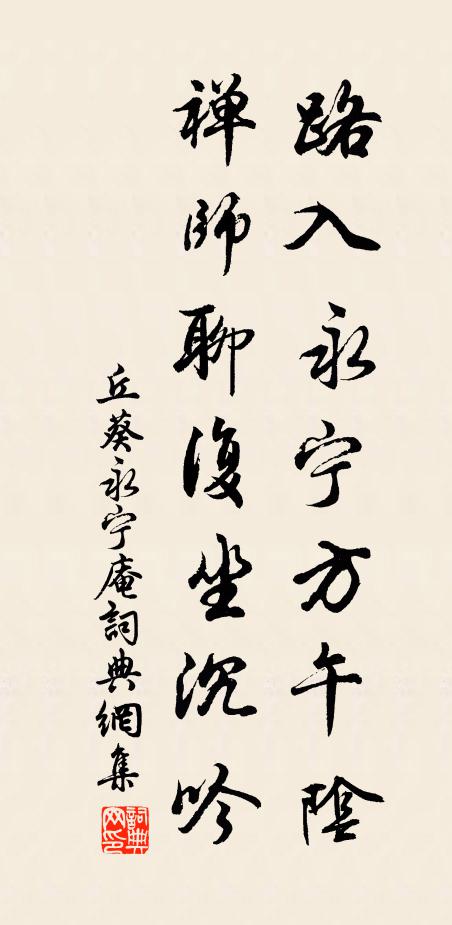 路入永宁方午陰
禅师聊復坐沉吟
丘葵永宁庵詞典網集
詞典网印